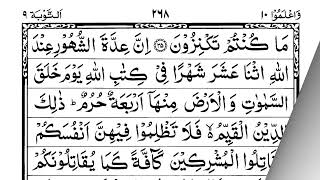 وَاعْلَمُوْٓا ١٠ ٢٦٨ اَلتَّوْبَة ٩
مَا كُنْتُمْ تَكْنِزُوْنَ ﴿٣٥﴾ اِنَّ عِدَّةَ الشُّهُوْرِ عِنْدَ
اللّٰهِ اثْنَا عَشَرَ شَهْرًا فِيْ كِتٰبِ اللّٰهِ يَوْمَ خَلَقَ
السَّمٰوٰتِ وَالْاَرْضَ مِنْهَآ اَرْبَعَةٌ حُرُمٌ ؕ ذٰلِكَ
الدِّيْنُ الْقَيِّمُ ۙ فَلَا تَظْلِمُوْا فِيْهِنَّ اَنْفُسَكُمْ
قَاتِلُوا الْمُشْرِكِيْنَ كَآفَّةً كَمَا يُقَاتِلُوْنَكُمْ